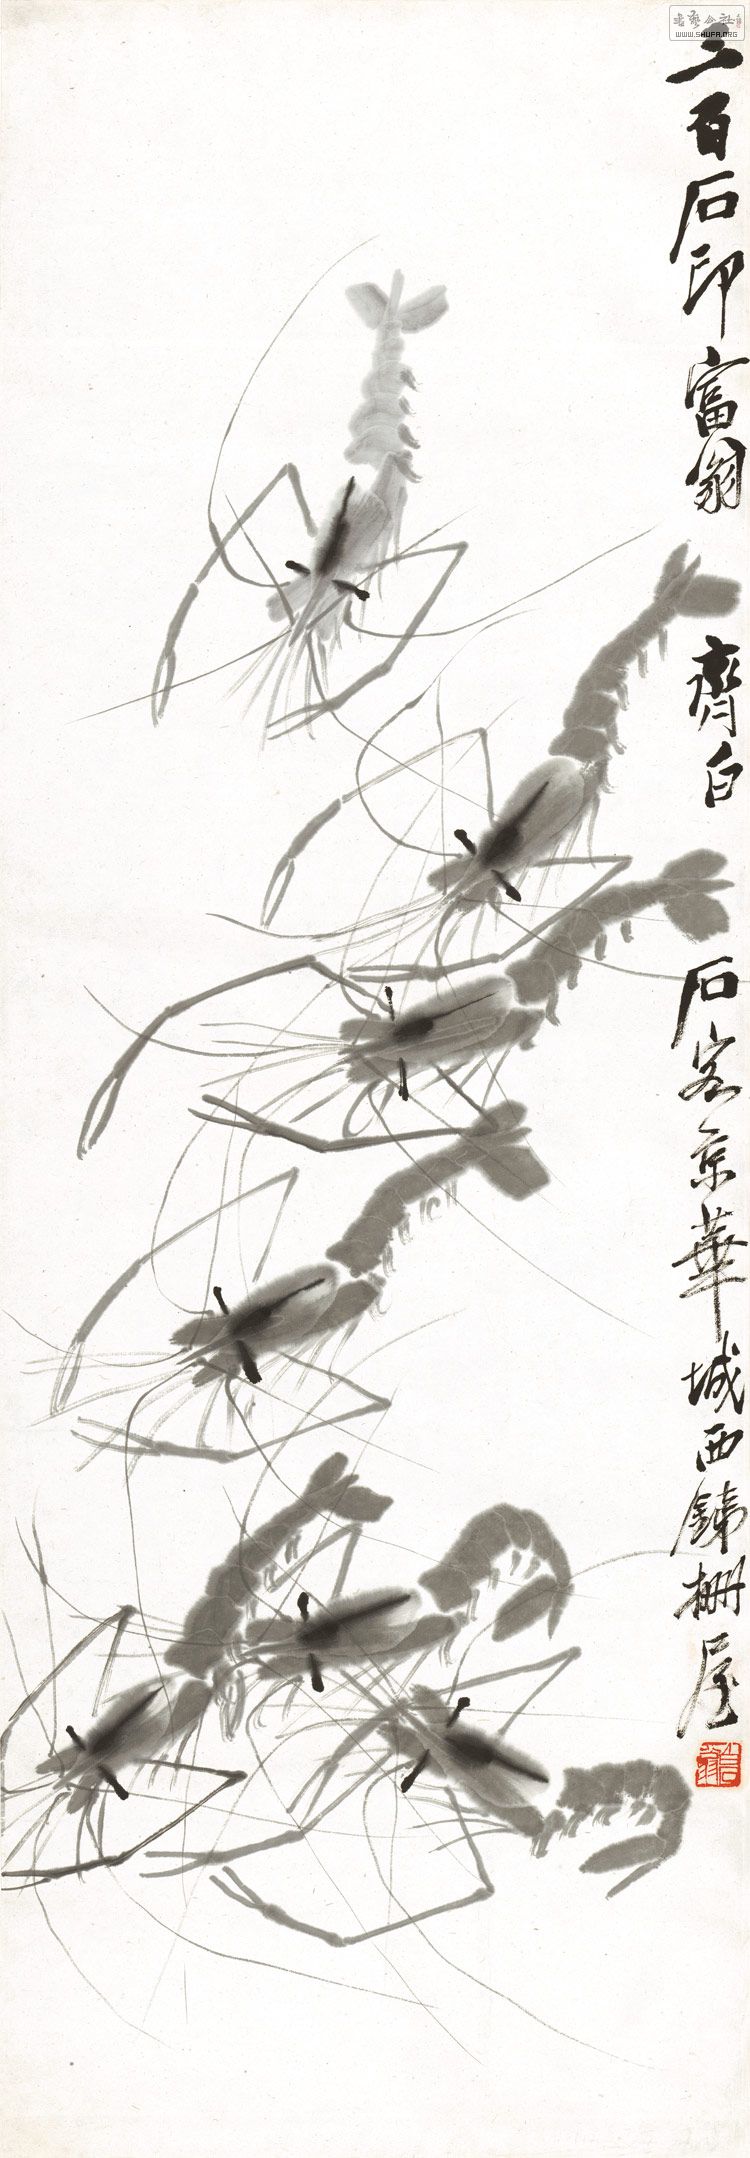 书艺公社
WWW.SHUFA.ORG
三百石印富翁 齊白石客京華城西鐵柵屋